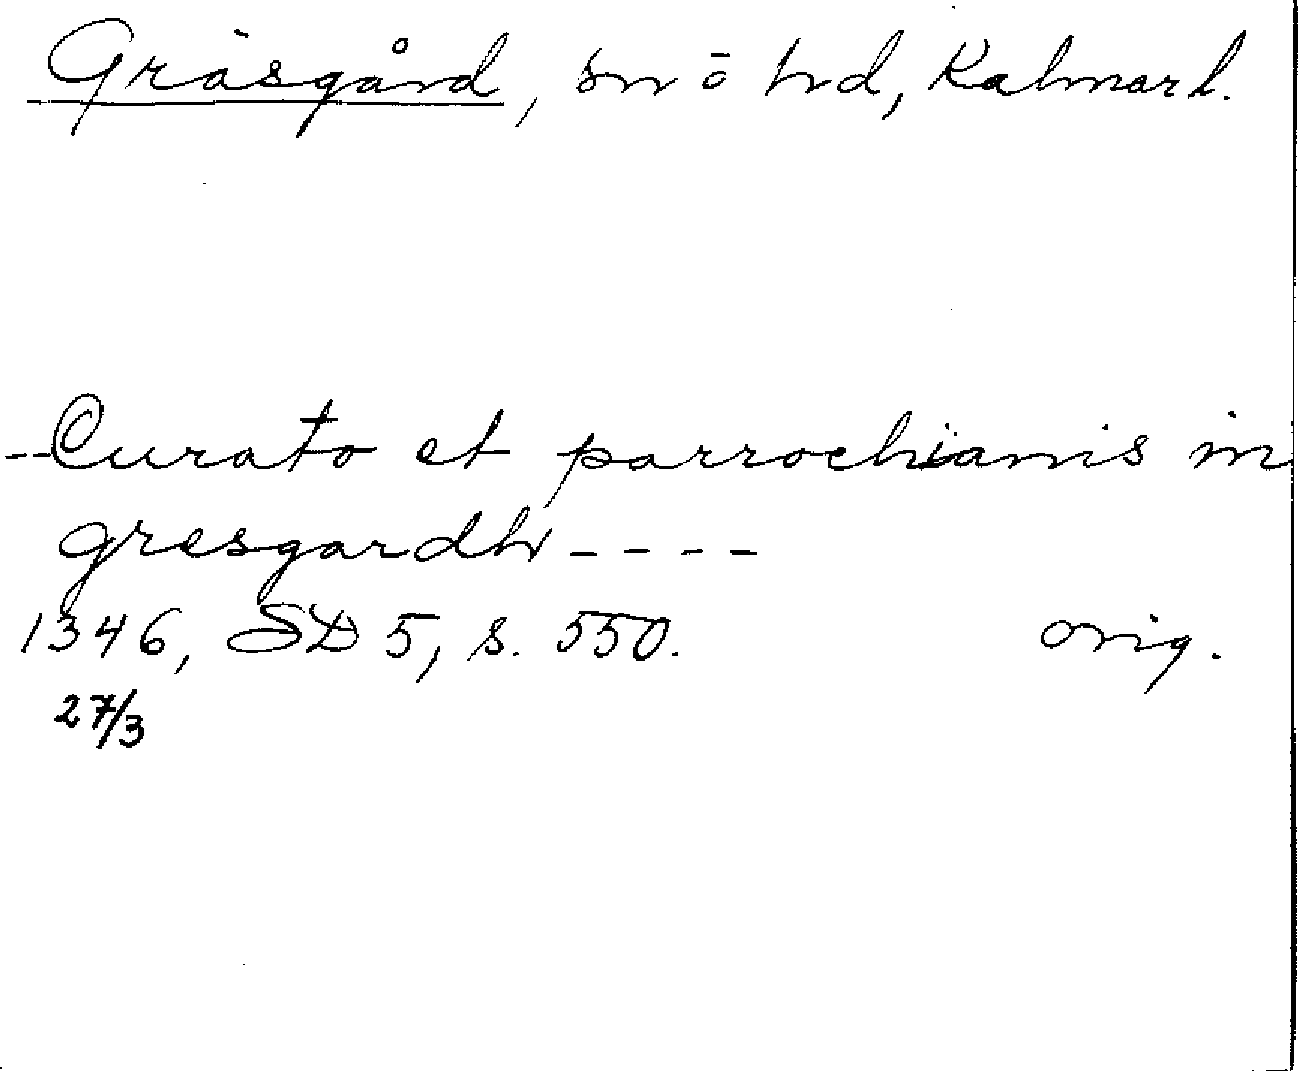 Gräsgård, sn o hd, Kalmar l.
--Curato et parrochianis in
gresgardh ----
1346, SD 5, s. 550. orig.
27/3